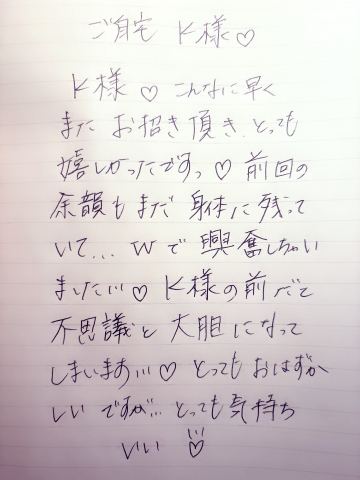 ご自宅 K様♡
K様♡ こんなに早く
また お招き頂き、とっても
嬉しかったですっ♡ 前回の
余韻もまだ 身体に残って
いて... Wで興奮しちゃい
ました!!!♡ K様の前だと
不思議と 大胆になって
しまいます!!!♡ とってもおはずか
しい ですが... とっても気持ち
いい ♡